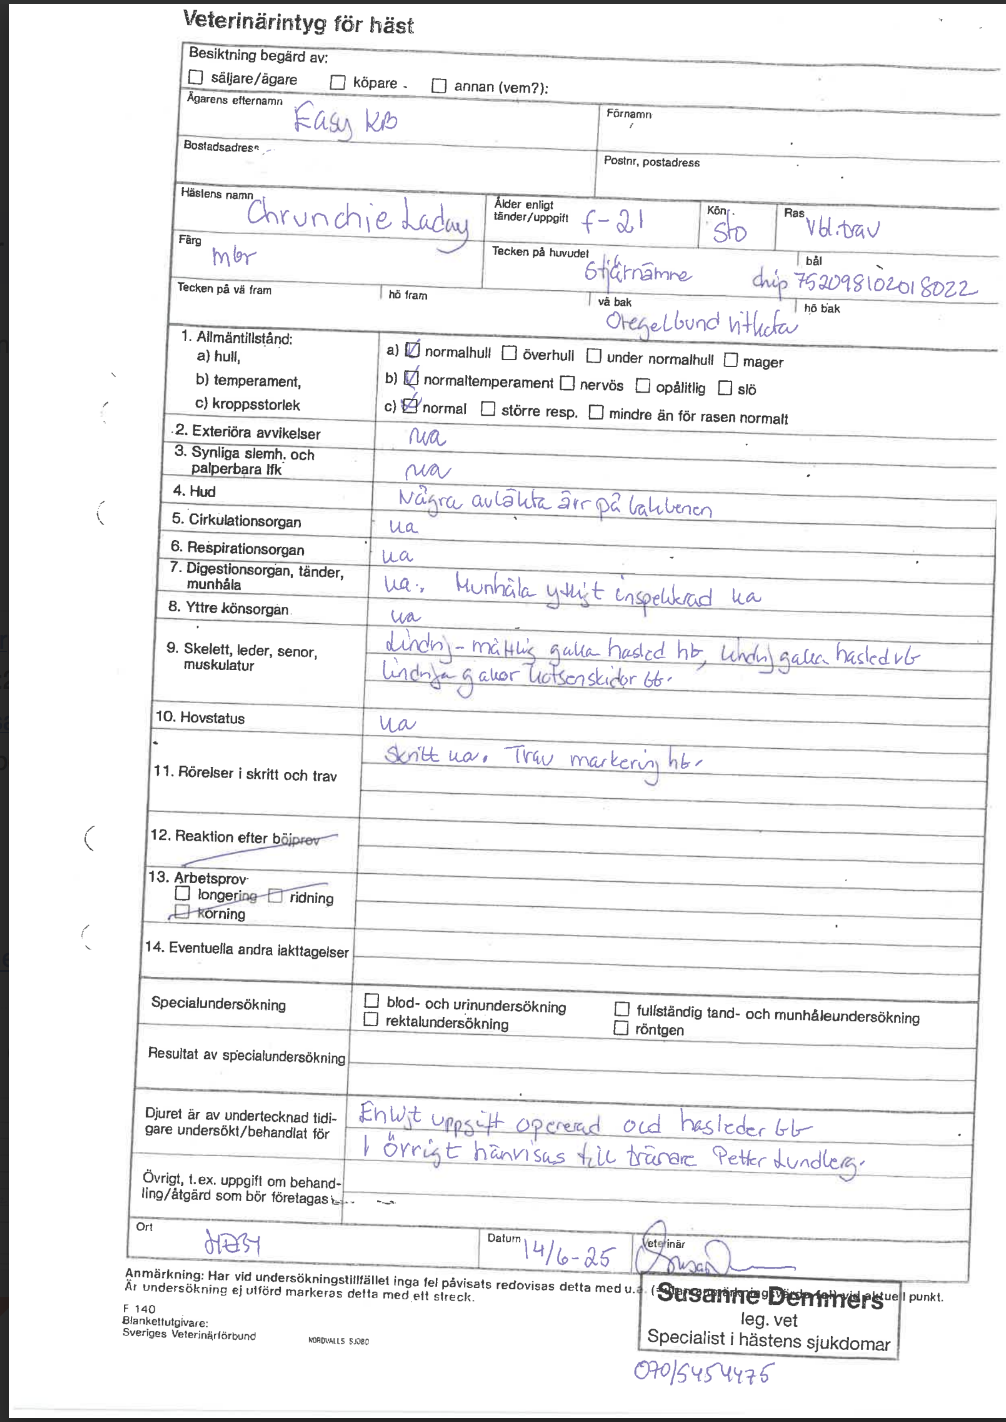 Veterinärintyg för häst
Besiktning begärd av:
☐ säljare/ägare ☐ köpare ☐ annan (vem?):
Ägarens efternamn Easy KB
Förnamn
Bostadsadress
Postnr, postadress
Hästens namn Chrunchie Laday
Ålder enligt tänder/uppgift f-21
Kön Sto
Ras Vbl.trav
Färg mbr
Tecken på huvudet Stjärnämne
bål
chip 752098102018022
Tecken på vä fram
hö fram
vä bak
hö bak
Oregelbund vitkota
1. Allmäntillstånd:
a) hull, a) ☑ normalhull ☐ överhull ☐ under normalhull ☐ mager
b) temperament, b) ☑ normaltemperament ☐ nervös ☐ opålitlig ☐ slö
c) kroppsstorlek c) ☑ normal ☐ större resp. ☐ mindre än för rasen normalt
2. Exteriöra avvikelser ua
3. Synliga slemh. och
palperbara lfk ua
4. Hud Några avläkta ärr på bakbenen
5. Cirkulationsorgan ua
6. Respirationsorgan ua
7. Digestionsorgan, tänder,
munhåla ua. Munhåla ytligt inspekterad ua
8. Yttre könsorgan ua
9. Skelett, leder, senor,
muskulatur
Lindrig-måttlig galla hasled hb, lindrig galla hasled vb
lindriga gallor kotsenskidor bb.
10. Hovstatus ua
11. Rörelser i skritt och trav Skritt ua. Trav markering hb.
12. Reaktion efter böjprov
13. Arbetsprov
☐ longering ☐ ridning
☐ körning
14. Eventuella andra iakttagelser
Specialundersökning
☐ blod- och urinundersökning ☐ fullständig tand- och munhåleundersökning
☐ rektalundersökning ☐ röntgen
Resultat av specialundersökning
Djuret är av undertecknad tidi-
gare undersökt/behandlat för
Enligt uppgift opererad ocd hasleder bb
I övrigt hänvisas till tränare Petter Lundberg.
Övrigt, t.ex. uppgift om behand-
ling/åtgärd som bör företagas
Ort
Datum 14/6-25
Veterinär
Anmärkning: Har vid undersökningstillfället inga fel påvisats redovisas detta med u.a. vid aktuell punkt.
Är undersökning ej utförd markeras detta med ett streck.
Susanne Demmers
leg. vet
Specialist i hästens sjukdomar
070/5454475
F 140
Blankettutgivare:
Sveriges Veterinärförbund
NORDVALLS